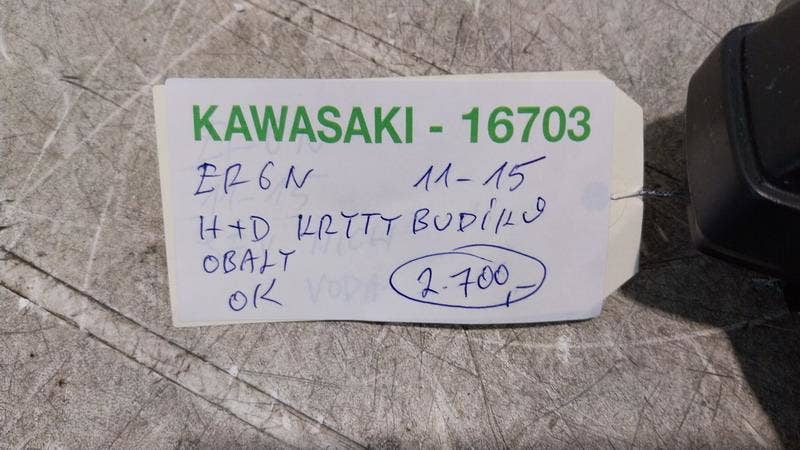 KAWASAKI - 16703
ER6N 11-15
H+D KRYTY BUDÍKŮ
OBALY
OK 2.700,-
VODA